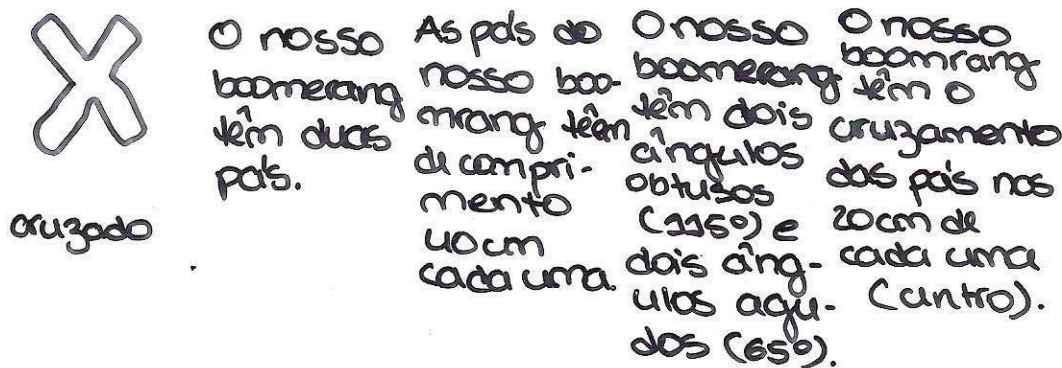 cruzado
O nosso
boomerang
têm duas
pás.
As pás do
nosso boo-
mrang têem
de compri-
mento
40 cm
cada uma.
O nosso
boomerang
têm dois
ângulos
obtusos
(115º) e
dois âng-
ulos agu-
dos (65º).
O nosso
boomrang
têm o
cruzamento
das pás nos
20 cm de
cada uma
(centro).